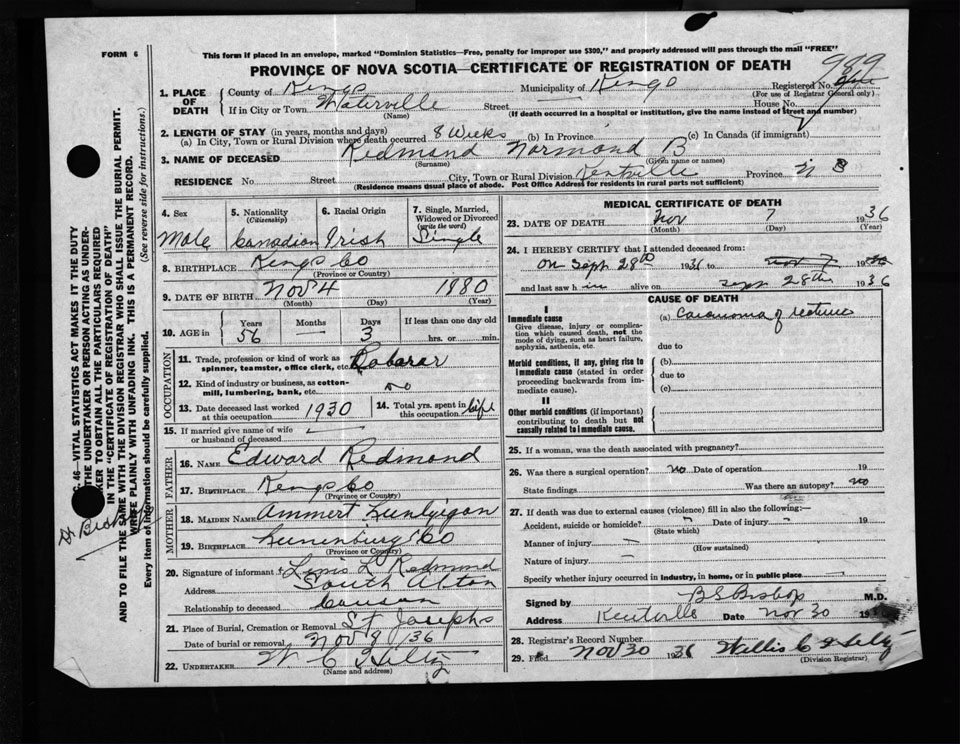 FORM 6
This form if placed in an envelope, marked "Dominion Statistics—Free, penalty for improper use $300," and properly addressed will pass through the mail "FREE"
PROVINCE OF NOVA SCOTIA—CERTIFICATE OF REGISTRATION OF DEATH
989
1. PLACE OF DEATH
County of Kings Municipality of Kings Registered No.
(For use of Registrar General only)
If in City or Town Waterville Street — House No.
(Name) (If death occurred in a hospital or institution, give the name instead of street and number)
2. LENGTH OF STAY (in years, months and days)
(a) In City, Town or Rural Division where death occurred 8 Weeks (b) In Province (c) In Canada (if immigrant)
3. NAME OF DECEASED Redmond Normond B
(Surname) (Given name or names)
RESIDENCE No. Street City, Town or Rural Division Kentville Province N S
(Residence means usual place of abode. Post Office Address for residents in rural parts not sufficient)
4. Sex Male
5. Nationality (Citizenship) Canadian
6. Racial Origin Irish
7. Single, Married, Widowed or Divorced (write the word) Single
8. BIRTHPLACE Kings Co
(Province or Country)
9. DATE OF BIRTH Nov 4 1880
(Month) (Day) (Year)
10. AGE in Years 56 Months — Days 3 If less than one day old hrs. or min.
OCCUPATION
11. Trade, profession or kind of work as spinner, teamster, office clerk, etc. Labarar
12. Kind of industry or business, as cotton-mill, lumbering, bank, etc.
13. Date deceased last worked at this occupation 1930
14. Total yrs. spent in this occupation life
15. If married give name of wife or husband of deceased —
FATHER
16. NAME Edward Redmond
17. BIRTHPLACE Kings Co
(Province or Country)
MOTHER
18. MAIDEN NAME
19. BIRTHPLACE Lunenburg Co
(Province or Country)
20. Signature of informant L Redmond
Address South Alton
Relationship to deceased Cousin
21. Place of Burial, Cremation or Removal St Josephs
Date of burial or removal Nov 9 / 36
22. UNDERTAKER W C Hiltz
(Name and address)
MEDICAL CERTIFICATE OF DEATH
23. DATE OF DEATH Nov 7 1936
(Month) (Day) (Year)
24. I HEREBY CERTIFY that I attended deceased from:
on Sept 28th 1936 to Nov 7 19
and last saw him alive on Sept 28th 1936
CAUSE OF DEATH
I
Immediate cause
Give disease, injury or complication which caused death, not the mode of dying, such as heart failure, asphyxia, asthenia, etc.
(a) Carcinoma of rectum
due to
Morbid conditions, if any, giving rise to immediate cause (stated in order proceeding backwards from immediate cause).
(b)
due to
(c)
II
Other morbid conditions (if important) contributing to death but not causally related to immediate cause.
25. If a woman, was the death associated with pregnancy?
26. Was there a surgical operation? no Date of operation 19
State findings Was there an autopsy? no
27. If death was due to external causes (violence) fill in also the following:—
Accident, suicide or homicide? Date of injury 19
(State which)
Manner of injury
(How sustained)
Nature of injury
Specify whether injury occurred in industry, in home, or in public place
Signed by B S Bishop M.D.
Address Kentville Date Nov 30 19
28. Registrar's Record Number
29. Filed Nov 30 1936 Willis C Hiltz
(Division Registrar)
46—VITAL STATISTICS ACT MAKES IT THE DUTY
THE UNDERTAKER OR PERSON ACTING AS UNDER-
TAKER TO OBTAIN ALL THE PARTICULARS REQUIRED
IN THE "CERTIFICATE OF REGISTRATION OF DEATH"
AND TO FILE THE SAME WITH THE DIVISION REGISTRAR WHO SHALL ISSUE THE BURIAL PERMIT.
WRITE PLAINLY WITH UNFADING INK. THIS IS A PERMANENT RECORD.
Every item of information should be carefully supplied. (See reverse side for instructions.)